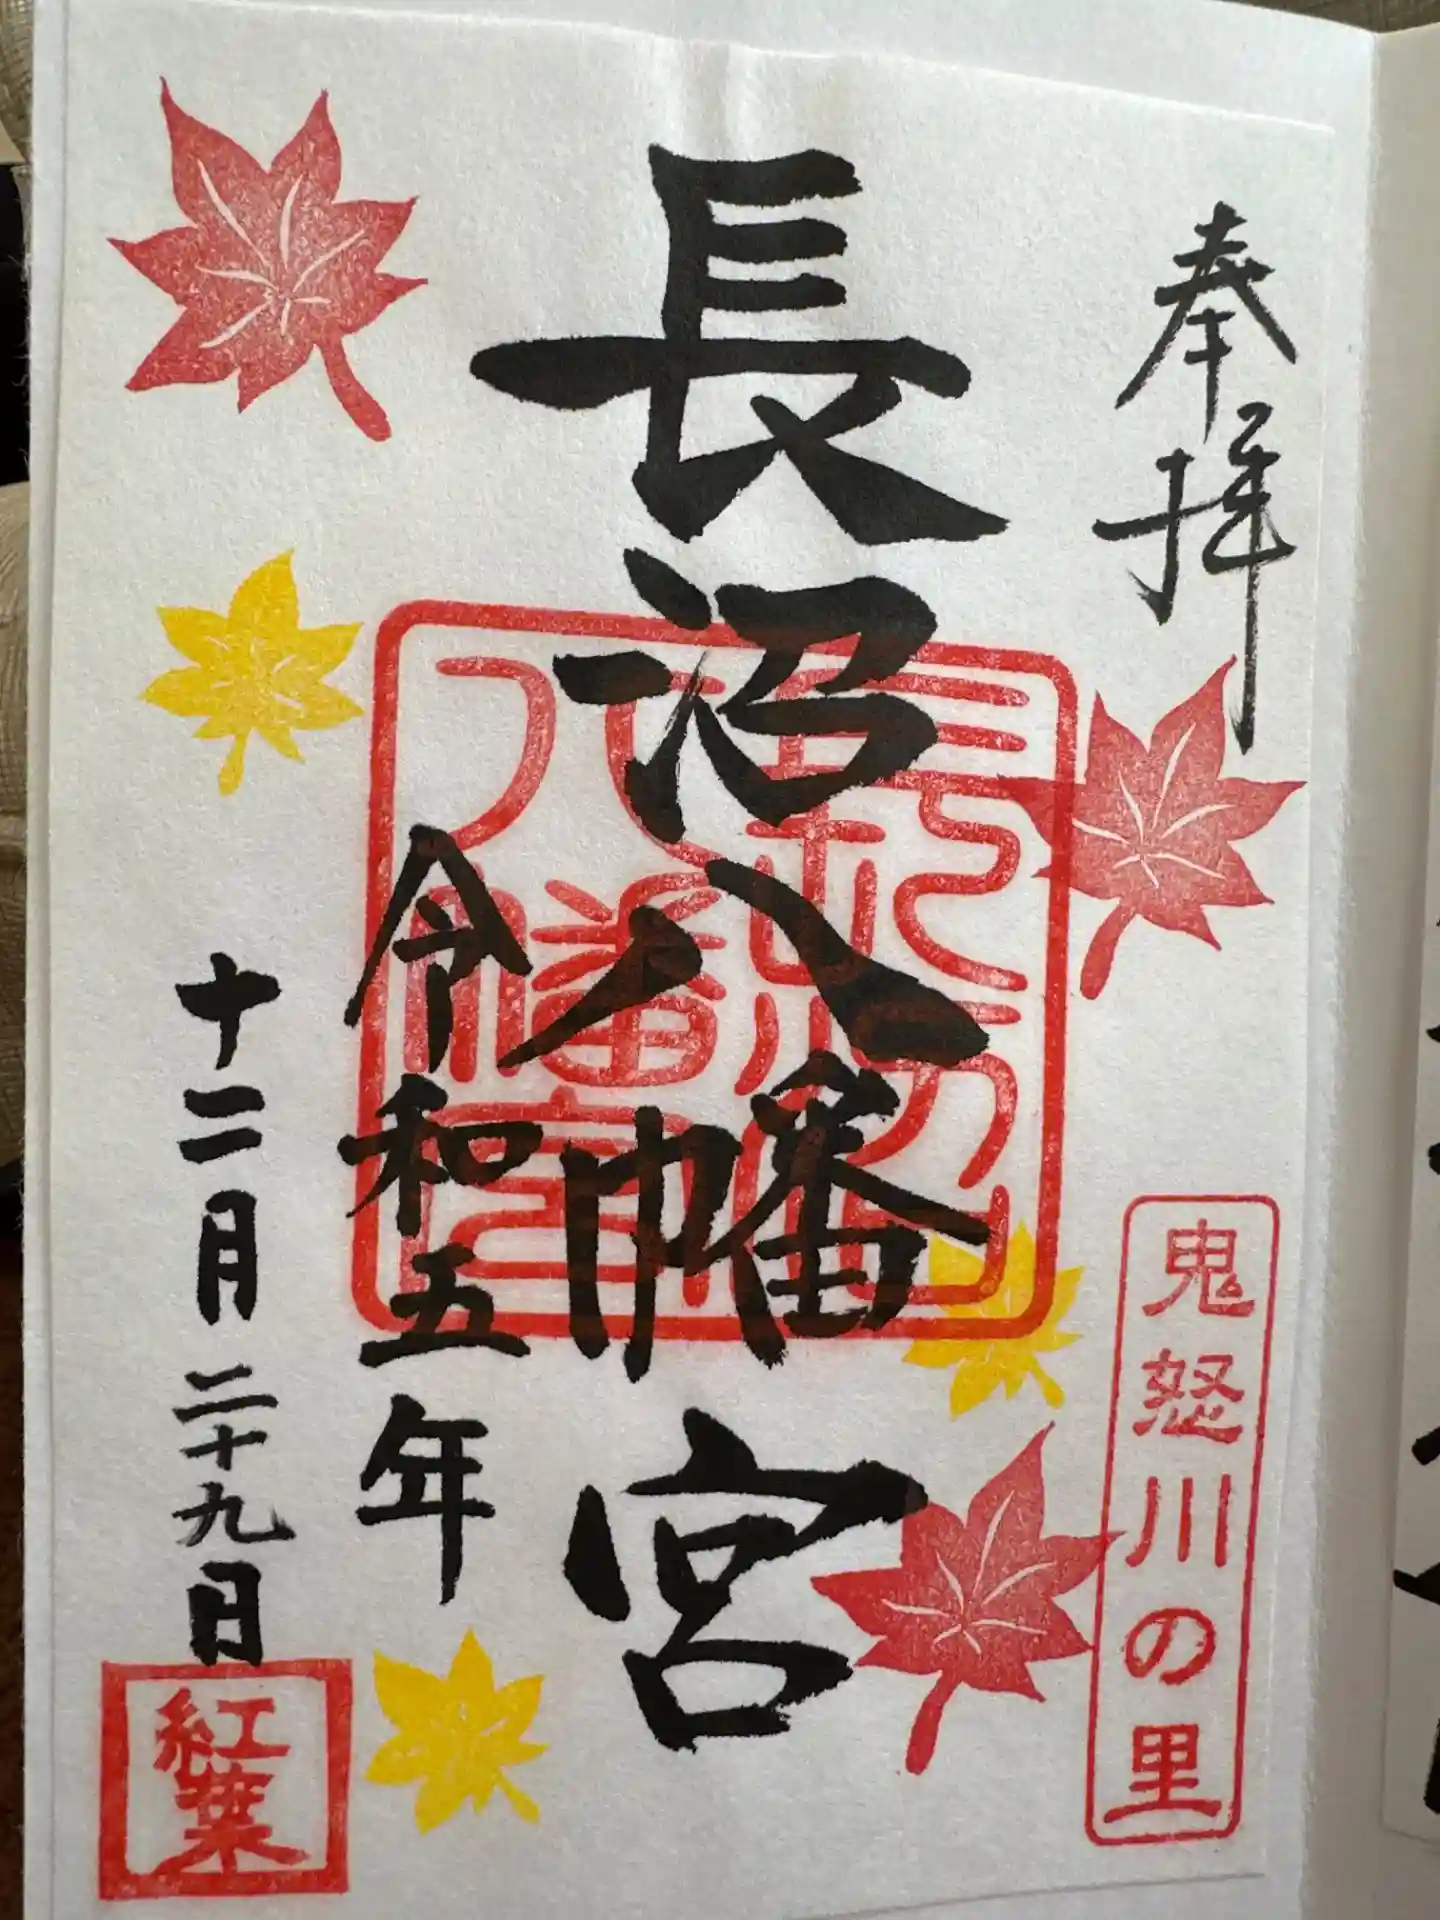 奉拝
鬼怒川の里
長沼八幡宮
令和五年
十二月二十九日
紅葉